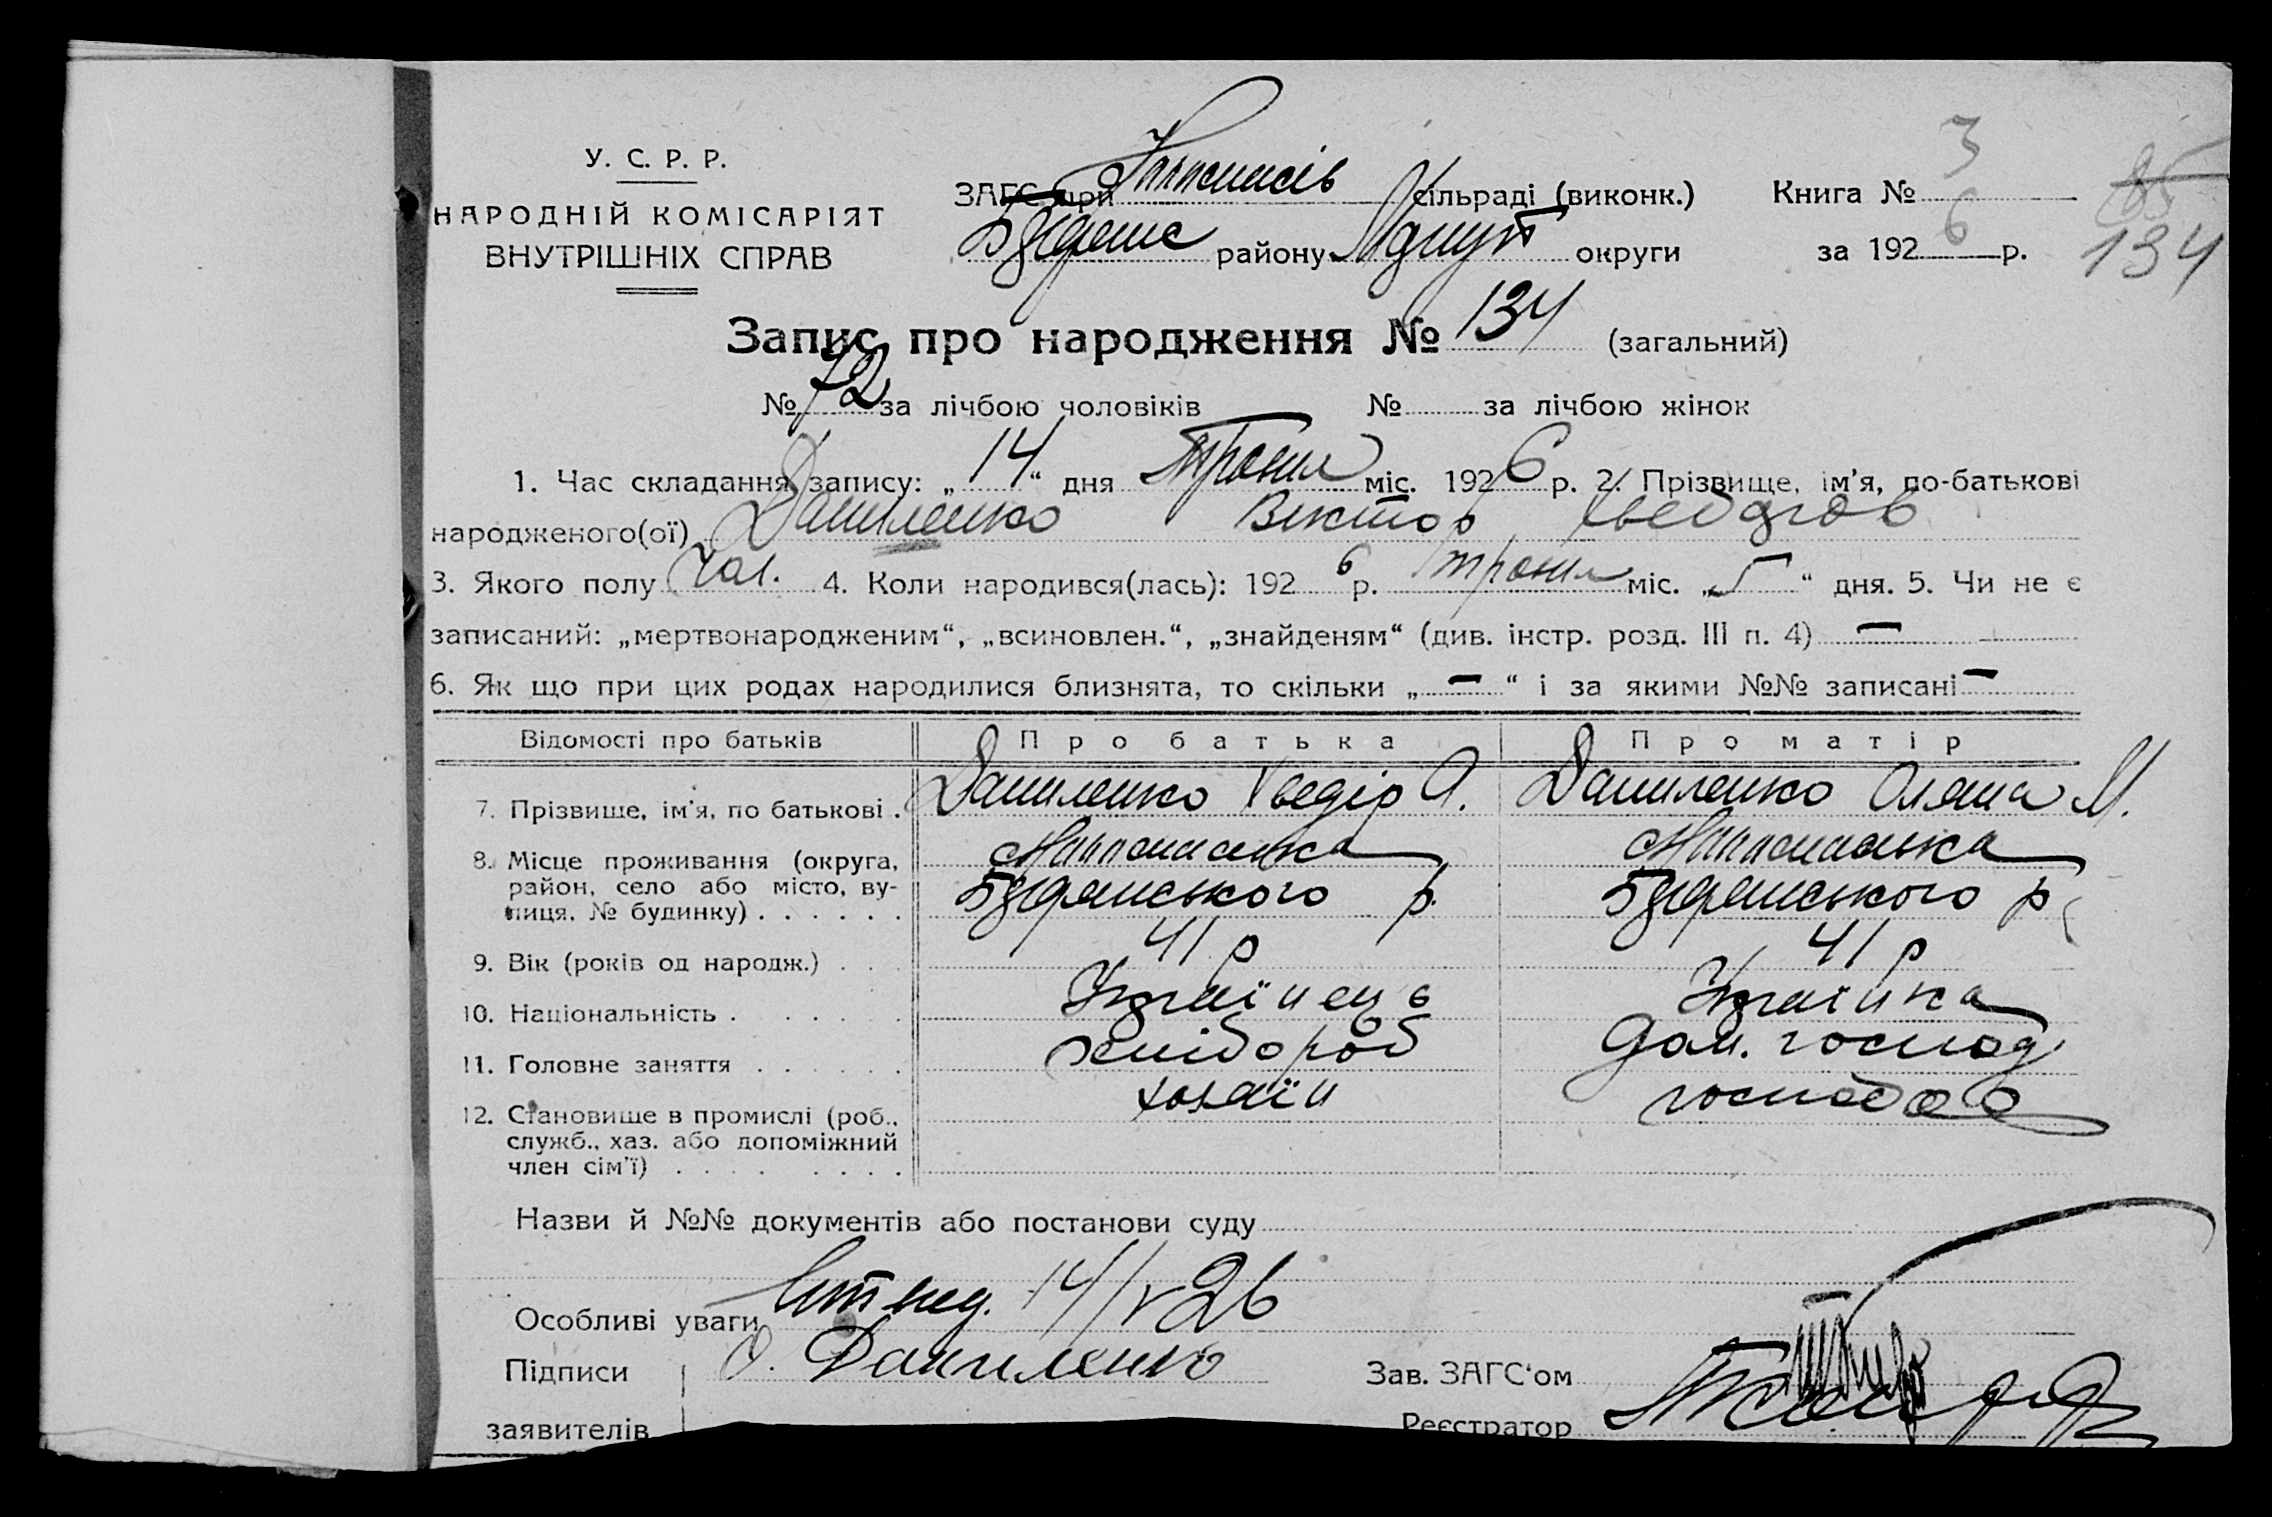 У. С. Р. Р.
НАРОДНІЙ КОМІСАРІЯТ
ВНУТРІШНІХ СПРАВ
ЗАГС при сільраді (виконк.)
району округи
Книга № 3
за 1926 р.
85
134
Запис про народження № 134 (загальний)
№ 72 за лічбою чоловіків № за лічбою жінок
1. Час складання запису: „14“ дня Травня міс. 1926 р. 2. Прізвище, ім'я, по-батькові
народженого(ої) Даниленко Віктор Хведоров
3. Якого полу чол. 4. Коли народився(лась): 1926 р. травня міс. „5“ дня. 5. Чи не є
записаний: „мертвонародженим“, „всиновлен.“, „знайденям“ (див. інстр. розд. III п. 4) —
6. Як що при цих родах народилися близнята, то скільки „—“ і за якими №№ записані —
Відомості про батьків Про батька Про матір
7. Прізвище, ім'я, по батькові . Даниленко Хведір Даниленко Оляна М.
8. Місце проживання (округа,
район, село або місто, ву-
лиця, № будинку) . . . . . . Будянського р. Будянського р
9. Вік (років од народж.) . . . 41 р 41 р
10. Національність . . . . . Українець Українка
11. Головне заняття . . . . . . хлібороб Дом. господ.
12. Становище в промислі (роб.,
служб., хаз. або допоміжний
член сім'ї) . . . . . . . . хазяїн
Назви й №№ документів або постанови суду
Особливі уваги 14/V 26
Підписи Даниленко
заявителів
Зав. ЗАГС'ом
Реєстратор